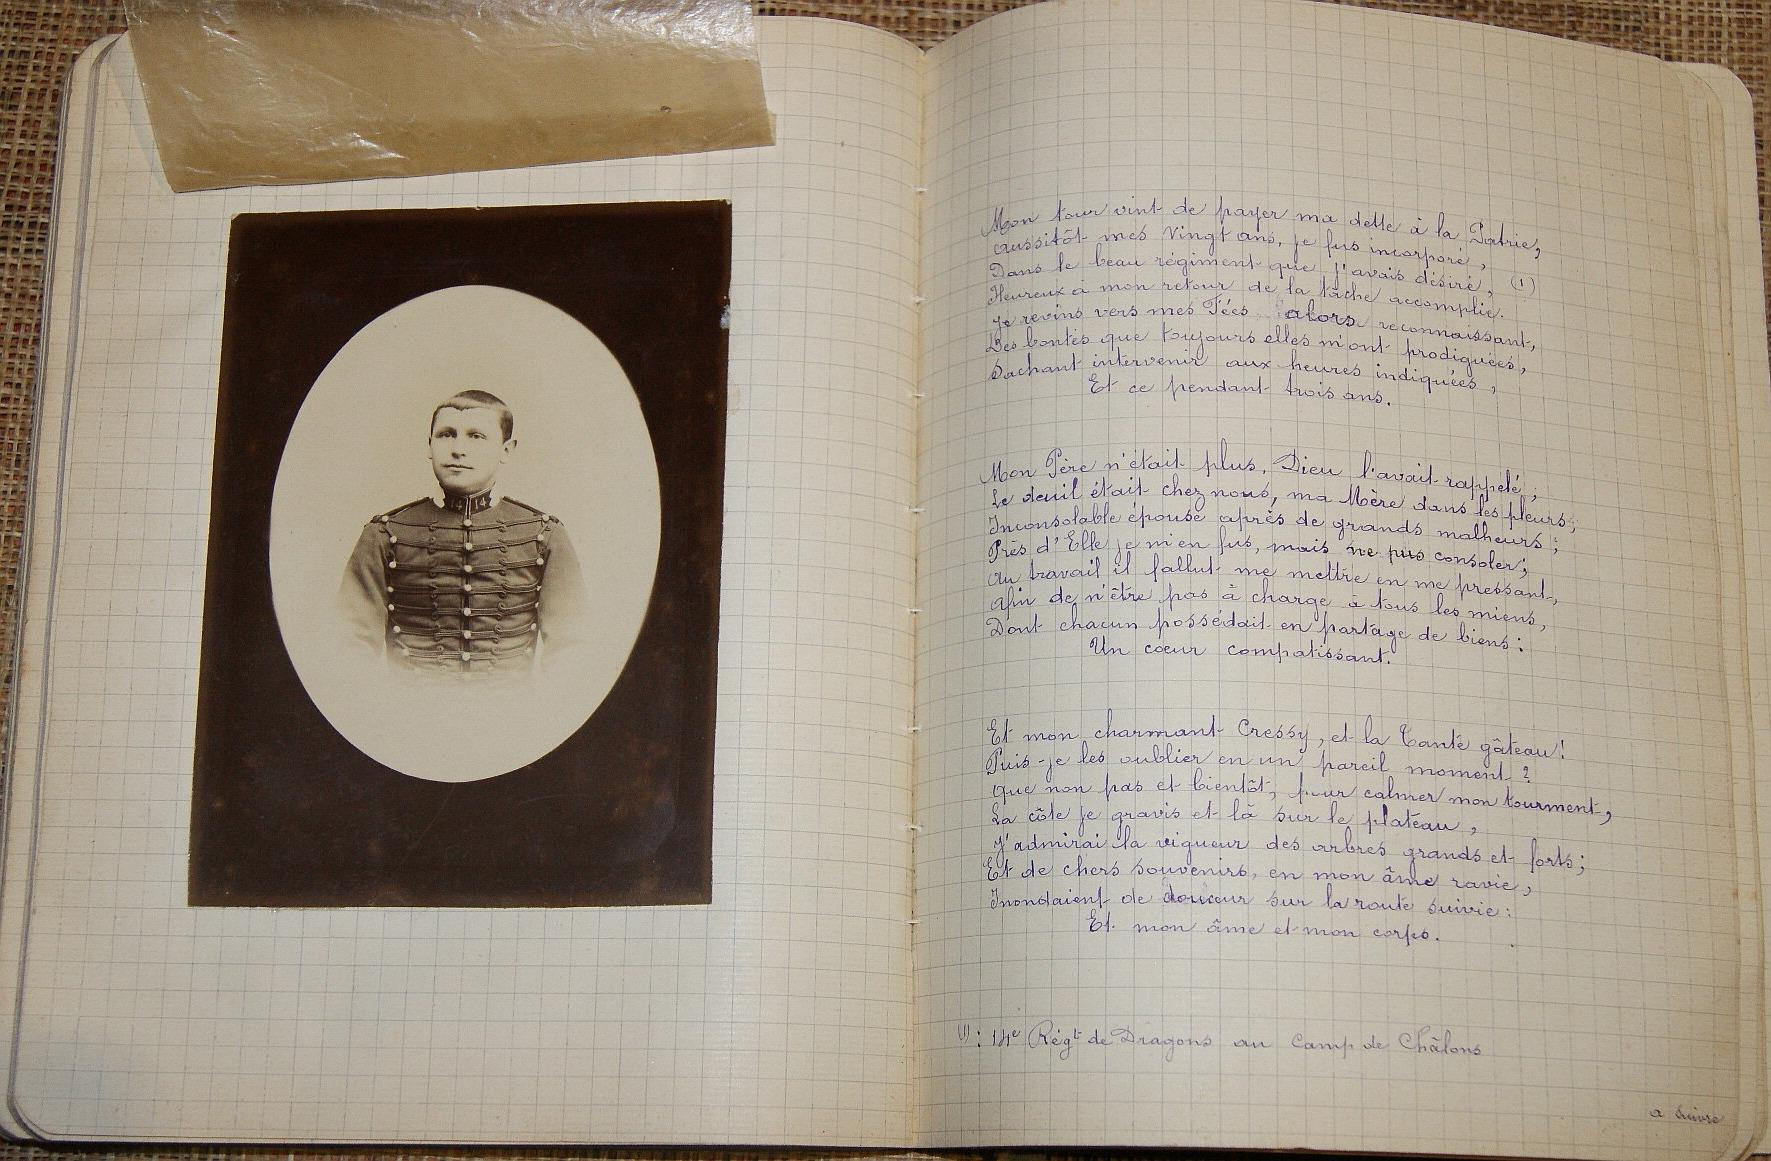 14 14
Mon tour vint de payer ma dette à la Patrie,
Aussitôt mes vingt ans, je fus incorporé,
Dans le beau régiment que j'avais désiré, (1)
Heureux à mon retour de la tâche accomplie.
Je revins vers mes Fées alors reconnaissant,
Des bontés que toujours elles m'ont prodiguées,
Sachant intervenir aux heures indiquées,
Et ce pendant trois ans.
Mon Père n'était plus, Dieu l'avait rappelé;
Le deuil était chez nous, ma Mère dans les pleurs;
Inconsolable épouse après de grands malheurs;
Près d'Elle je m'en fus, mais ne pus consoler;
Au travail il fallut me mettre en me pressant,
Afin de n'être pas à charge à tous les miens,
Dont chacun possédait en partage de biens:
Un cœur compatissant.
Et mon charmant Cressy, et la Tante gâteau!
Puis-je les oublier en un pareil moment?
Que non pas et bientôt, pour calmer mon tourment,
La côte je gravis et là sur le plateau,
J'admirai la vigueur des arbres grands et forts;
Et de chers souvenirs, en mon âme ravie,
Inondaient de douceur sur la route suivie:
Et mon âme et mon corps.
(1): 14e Régt de Dragons au Camp de Châlons
a suivre